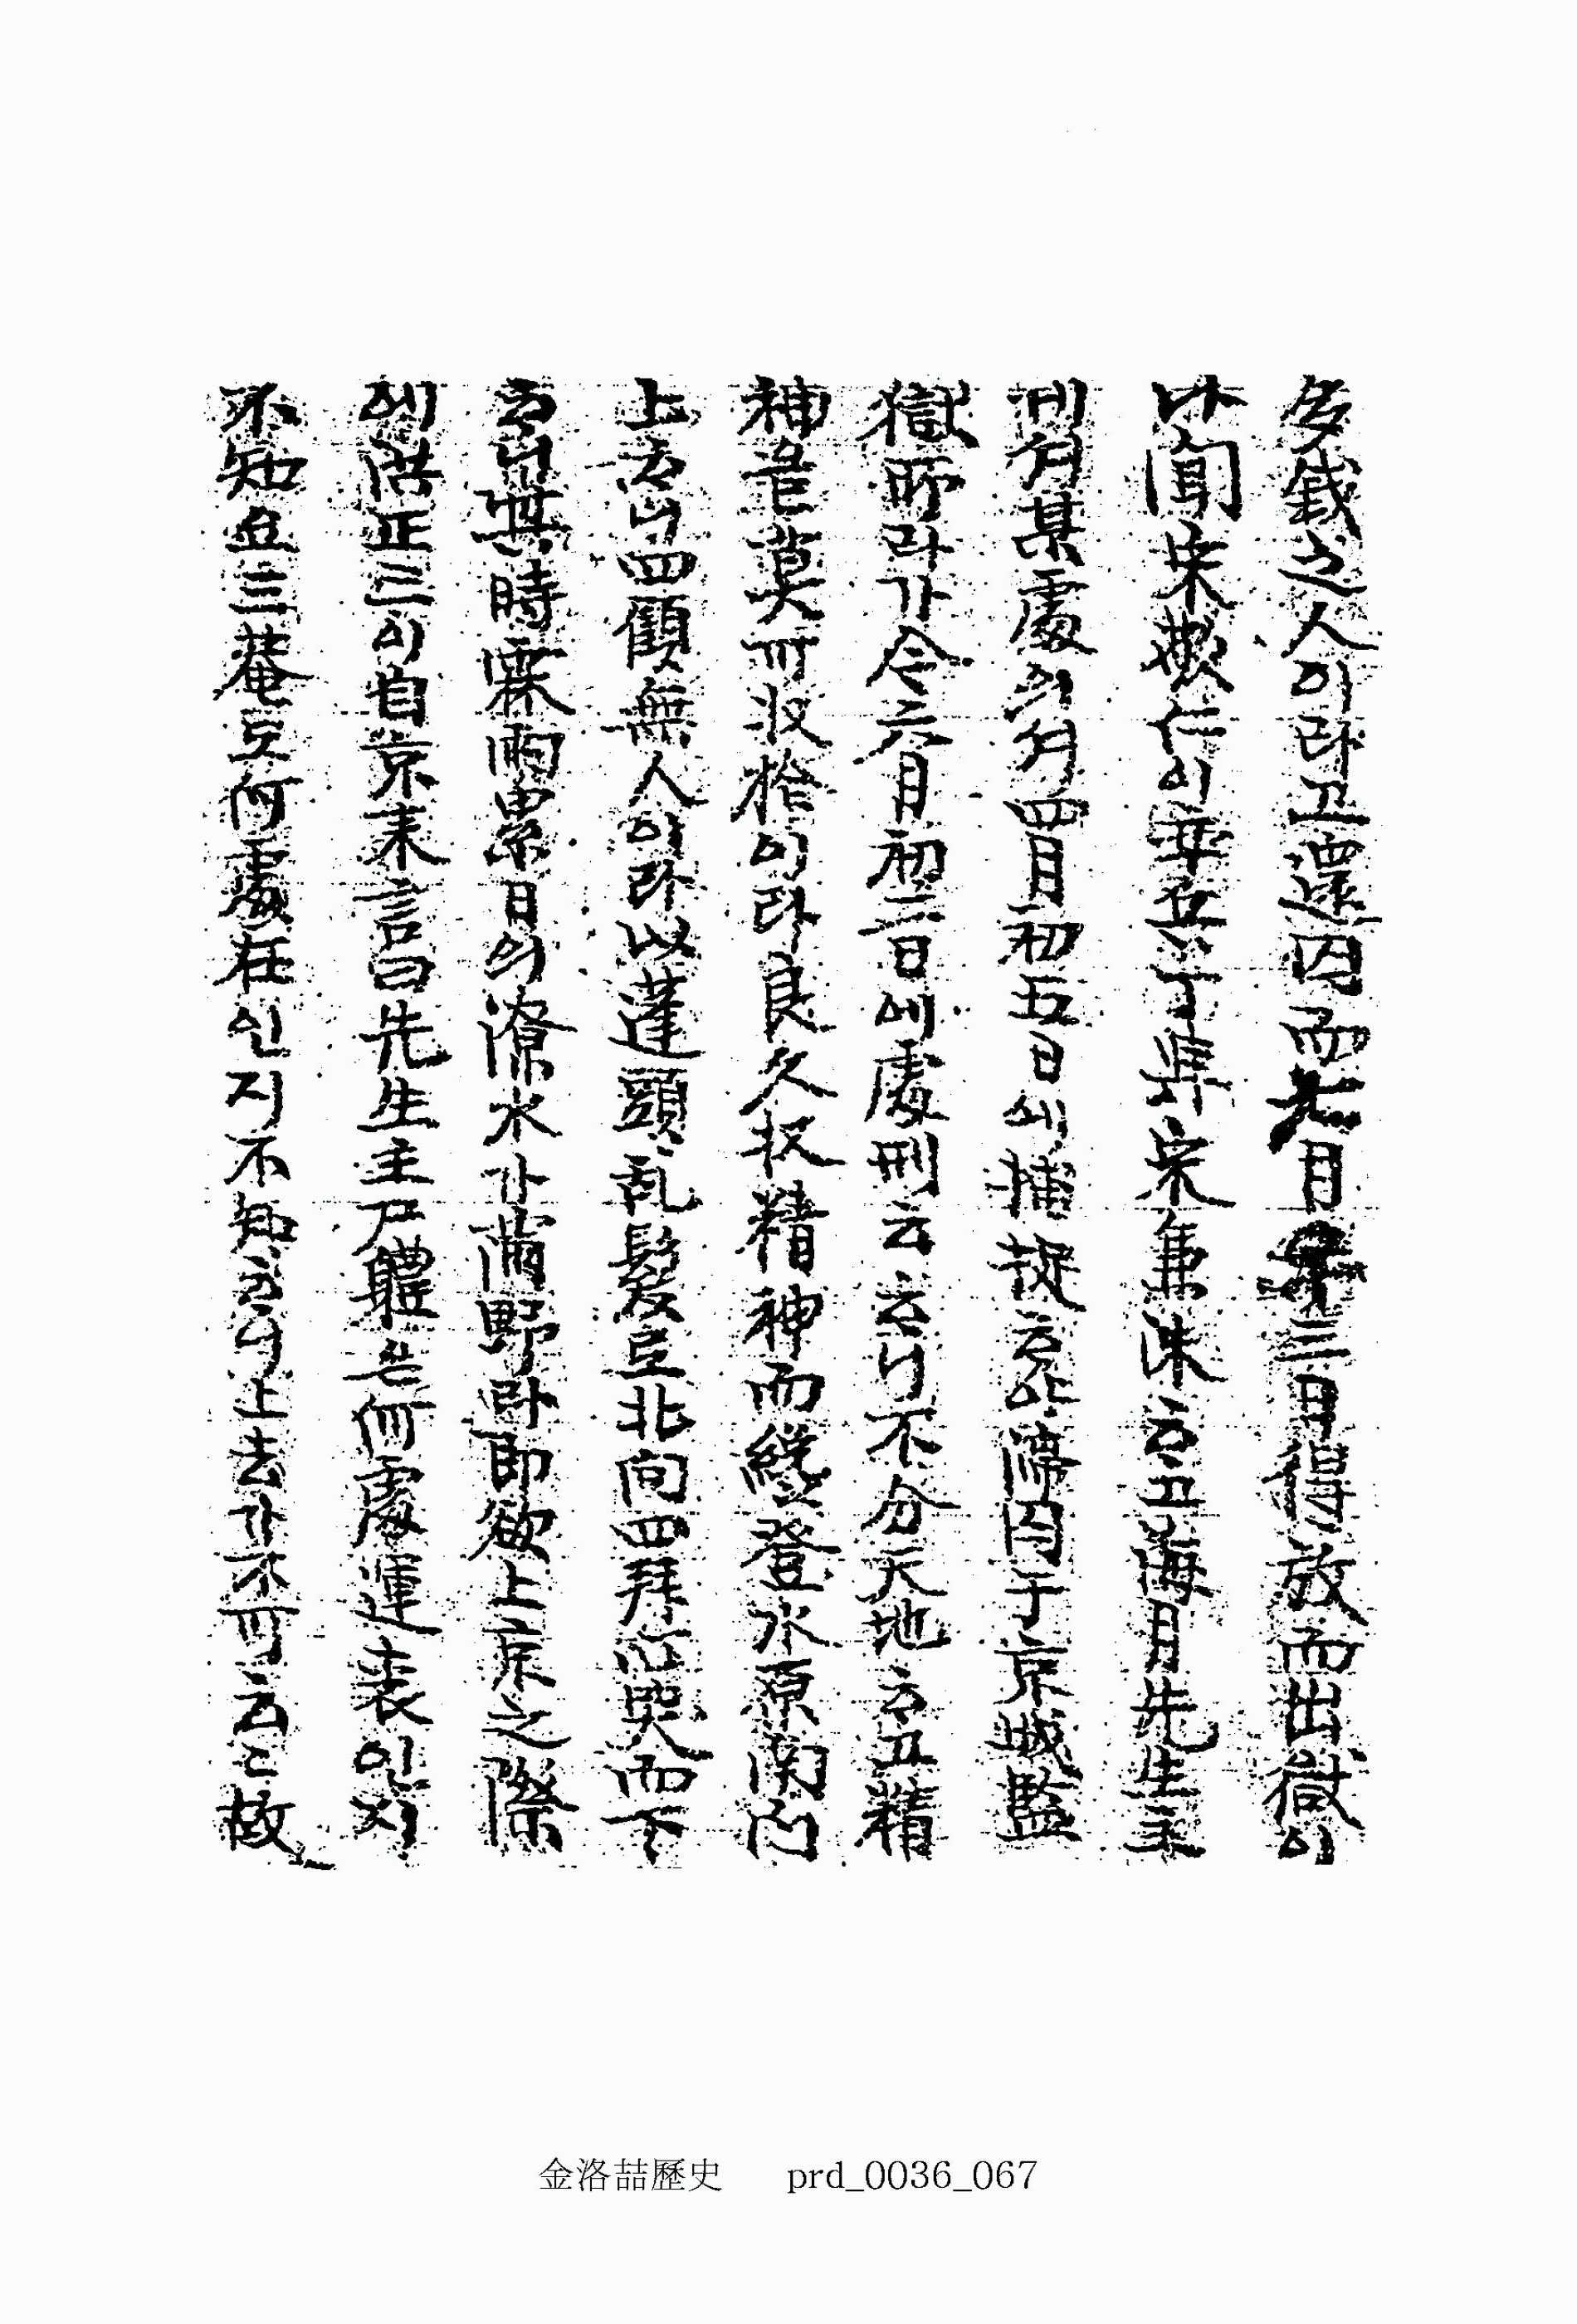 多錢之人이라고還囚而 月 三日得放而出獄이
나聞宋敬仁이 兵丁 宋 洙云고海月先生主
게서某處의서四月初五日에捕捉 야滯囚于京城監
獄所라가今六月初二日에處刑云云니不分天地云고精
神을莫可收拾이라良久收精神而纔登水原南門
上去니四顧無人이라以蓬頭乱髮로北向四拜心哭而下
 니其時霖雨累日의潦水가滿野라即欲上京之際
에洪正三이自京來言曰先生主尸體는何處運喪인지
不知요三菴도何處在인지不知 니上去가不可云云故
金洛喆歷史 prd_0036_067